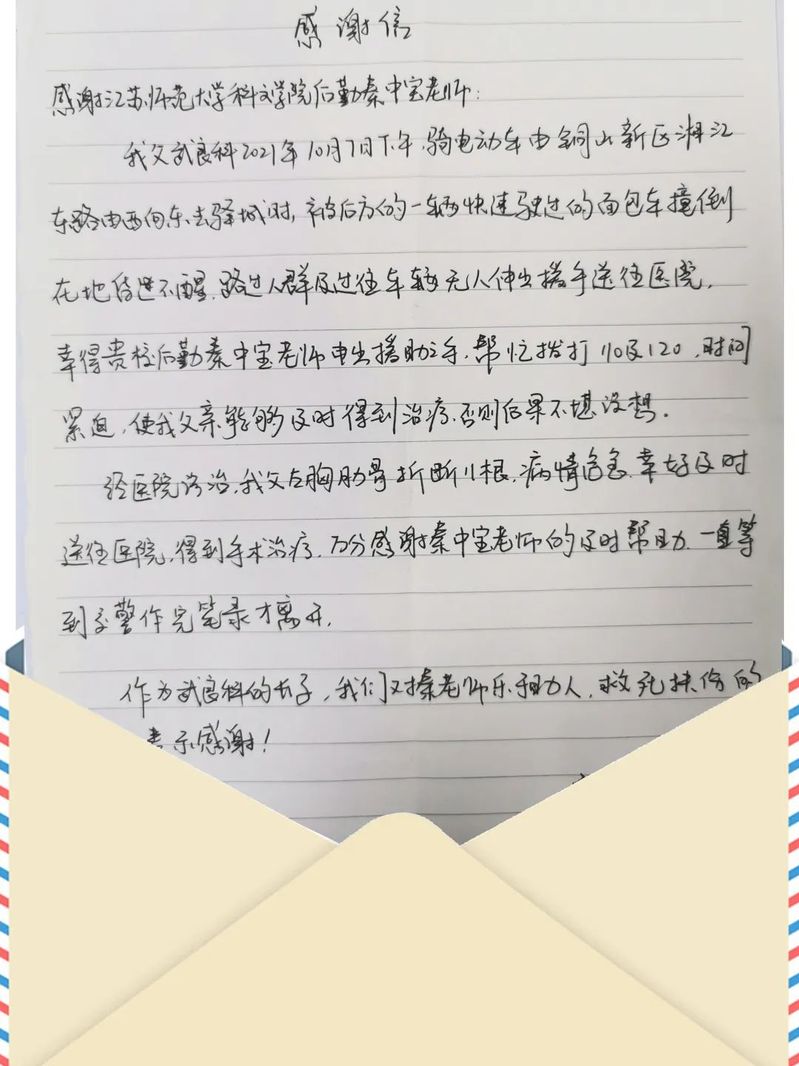 感谢信
感谢江苏师范大学科文学院后勤秦中宝老师：
我父武良科2021年10月7日下午，骑电动车由铜山新区湘江
东路由西向东去驿城时，被后方的一辆快速驶过的面包车撞倒
在地昏迷不醒，路过人群及过往车辆无人伸出援手送往医院，
幸得贵校后勤秦中宝老师伸出援助之手，帮忙拨打110及120，时间
紧迫，使我父亲能够及时得到治疗，否则后果不堪设想。
经医院诊治，我父左胸肋骨折断11根，病情危急，幸好及时
送往医院，得到手术治疗，万分感谢秦中宝老师的及时帮助，一直等
到交警作完笔录才离开。
作为武良科的长子，我们对秦老师乐于助人，救死扶伤的
表示感谢！